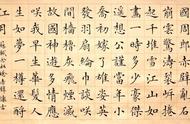 雲驚濤裂岸捲
起千堆雪江山如
畫一時多少豪傑
遙想公瑾當年小
喬初嫁了雄姿英
發羽扇綸巾談笑
間檣櫓灰飛煙滅
故國神遊多情應
笑我早生華髮人
生如夢一樽還酹
江月